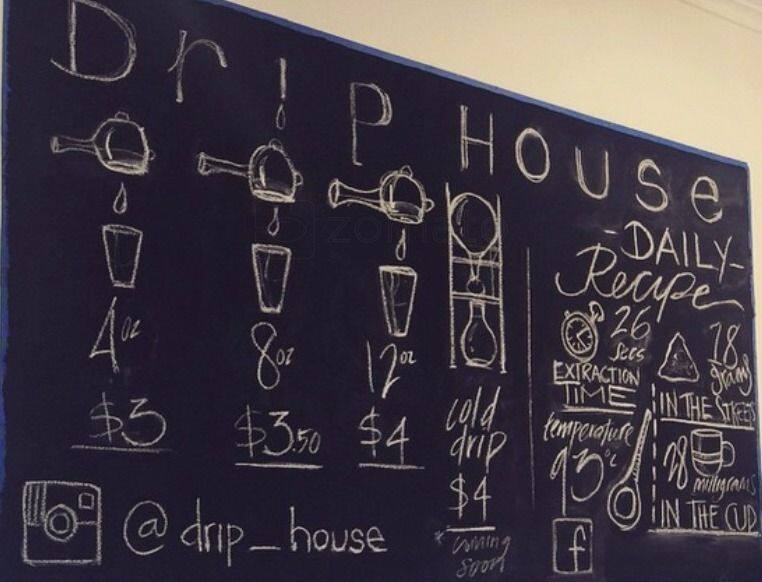 Drip House
4oz
$3
8oz
$3.50
12oz
$4
cold
drip
$4
*coming
soon
-DAILY-
Recipe
26
secs
EXTRACTION
TIME
temperature
93°c
18
grams
IN THE STREETS
28
milligrams
IN THE CUP
@drip_house
f
zomato